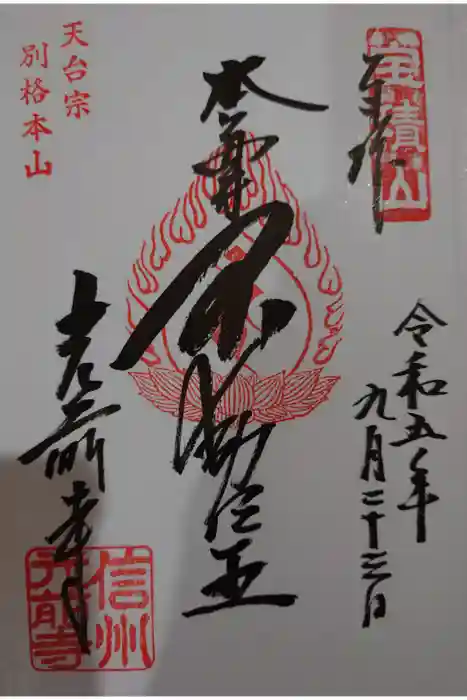 奉拝
宝積山
令和五年
九月二十三日
本尊
不動明王
天台宗
別格本山
光前寺
信州
光前寺